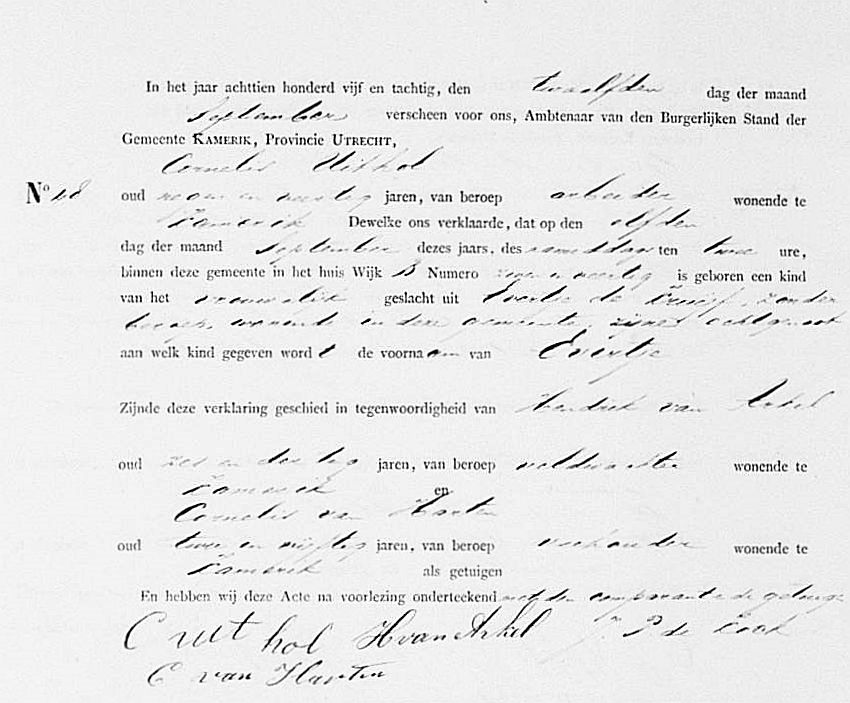 In het jaar achttien honderd vijf en tachtig, den twaalfden dag der maand
September verscheen voor ons, Ambtenaar van den Burgerlijken Stand der
Gemeente KAMERIK, Provincie UTRECHT,
Cornelis Uithol
No
oud en jaren, van beroep arbeider wonende te
Kamerik Dewelke ons verklaarde, dat op den elfden
dag der maand September dezes jaars, des namiddags ten twee ure,
binnen deze gemeente in het huis Wijk B Numero zeven en veertig is geboren een kind
van het vrouwelijk geslacht uit Evertje de Kruijf, zonder
beroep, wonende in deze gemeente, zijne echtgenoot
aan welk kind gegeven wordt de voornaam van Evertje
Zijnde deze verklaring geschied in tegenwoordigheid van Hendrik van Arkel
oud zes en dertig jaren, van beroep veldwachter wonende te
Kamerik en
Cornelis van Harten
oud twee en vijftig jaren, van beroep veehouder wonende te
Kamerik als getuigen
En hebben wij deze Acte na voorlezing onderteekend met den comparant en de getuigen
C uit hol H van Arkel de
C van Harten